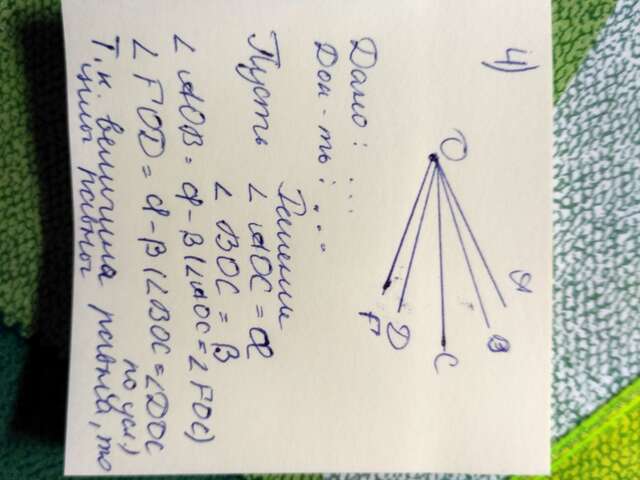 4)
O
A
B
C
D
F
Дано: ...
Док-ть: ...
Решение
Пусть ∠AOC = α
∠BOC = β
∠AOB = α - β (∠AOC = ∠FOC)
∠FOD = α - β (∠BOC = ∠DOC
по усл.)
Т.к. величина равна, то
углы равны